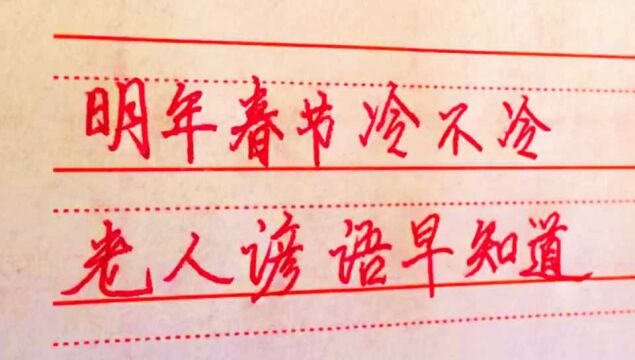 明年春节冷不冷
老人谚语早知道